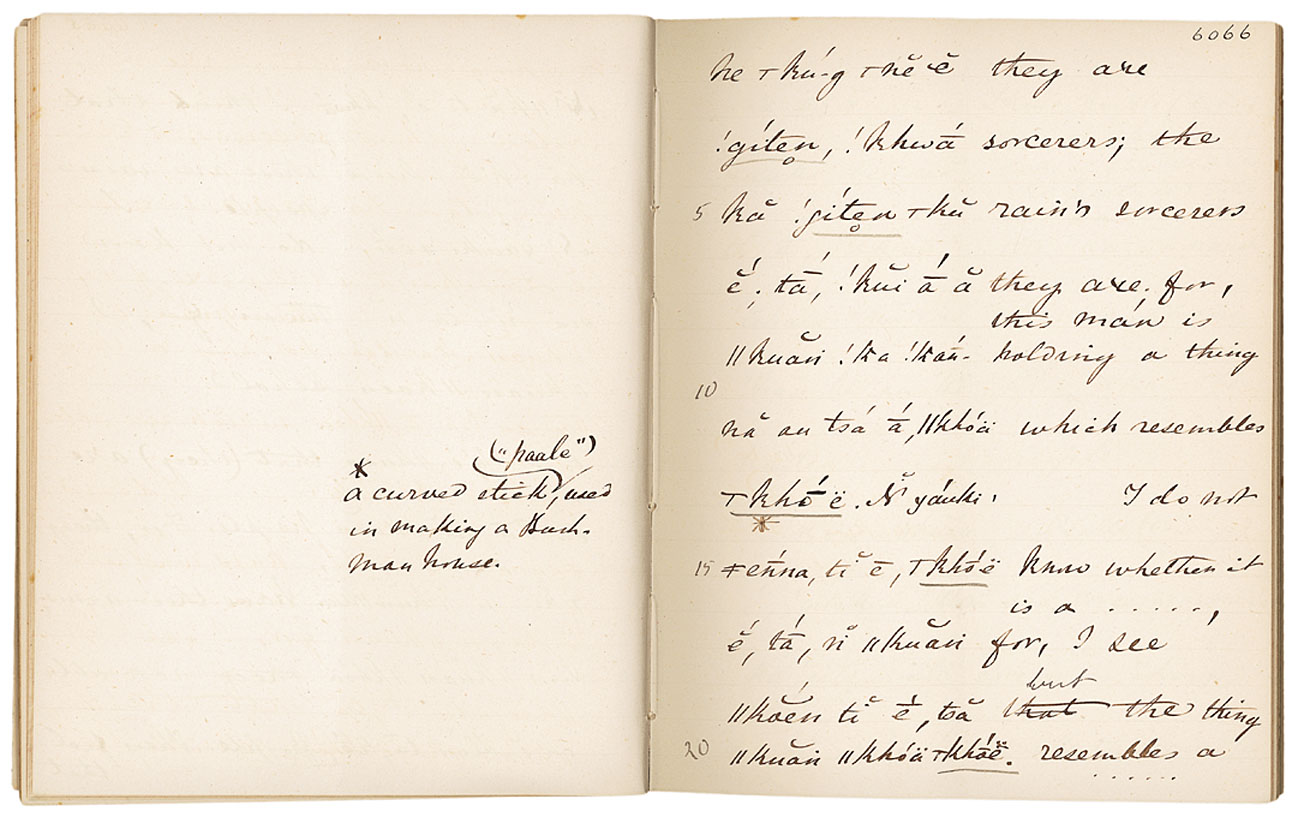 ("paale")
*
a curved stick, used
in making a Bush-
man house.
6066
he ⊤kú-g ⊤nĕ ĕ they are
!gíten̥, !khwā́ sorcerers; the
5 kă !gíten̥ ⊤kŭ rain's sorcerers
é; tā́, !kŭi ā́ ă they are, for,
this man is
ǁkuăn !ka !kań- holding a thing
10
nă au tsá á, ǁkhóä which resembles
⊤khó̄ë. Ň yáuki I do not
*
15 ǂeńna, tĭ ē, ⊤khóë know whether it
is a . . . . . ,
é, tā́, ň ǁkuăn for, I see
but
ǁkŏén tĭ é, tsă that the thing
20 ǁkuăn ǁkhóä ⊤khóë. resembles a
. . . . . .